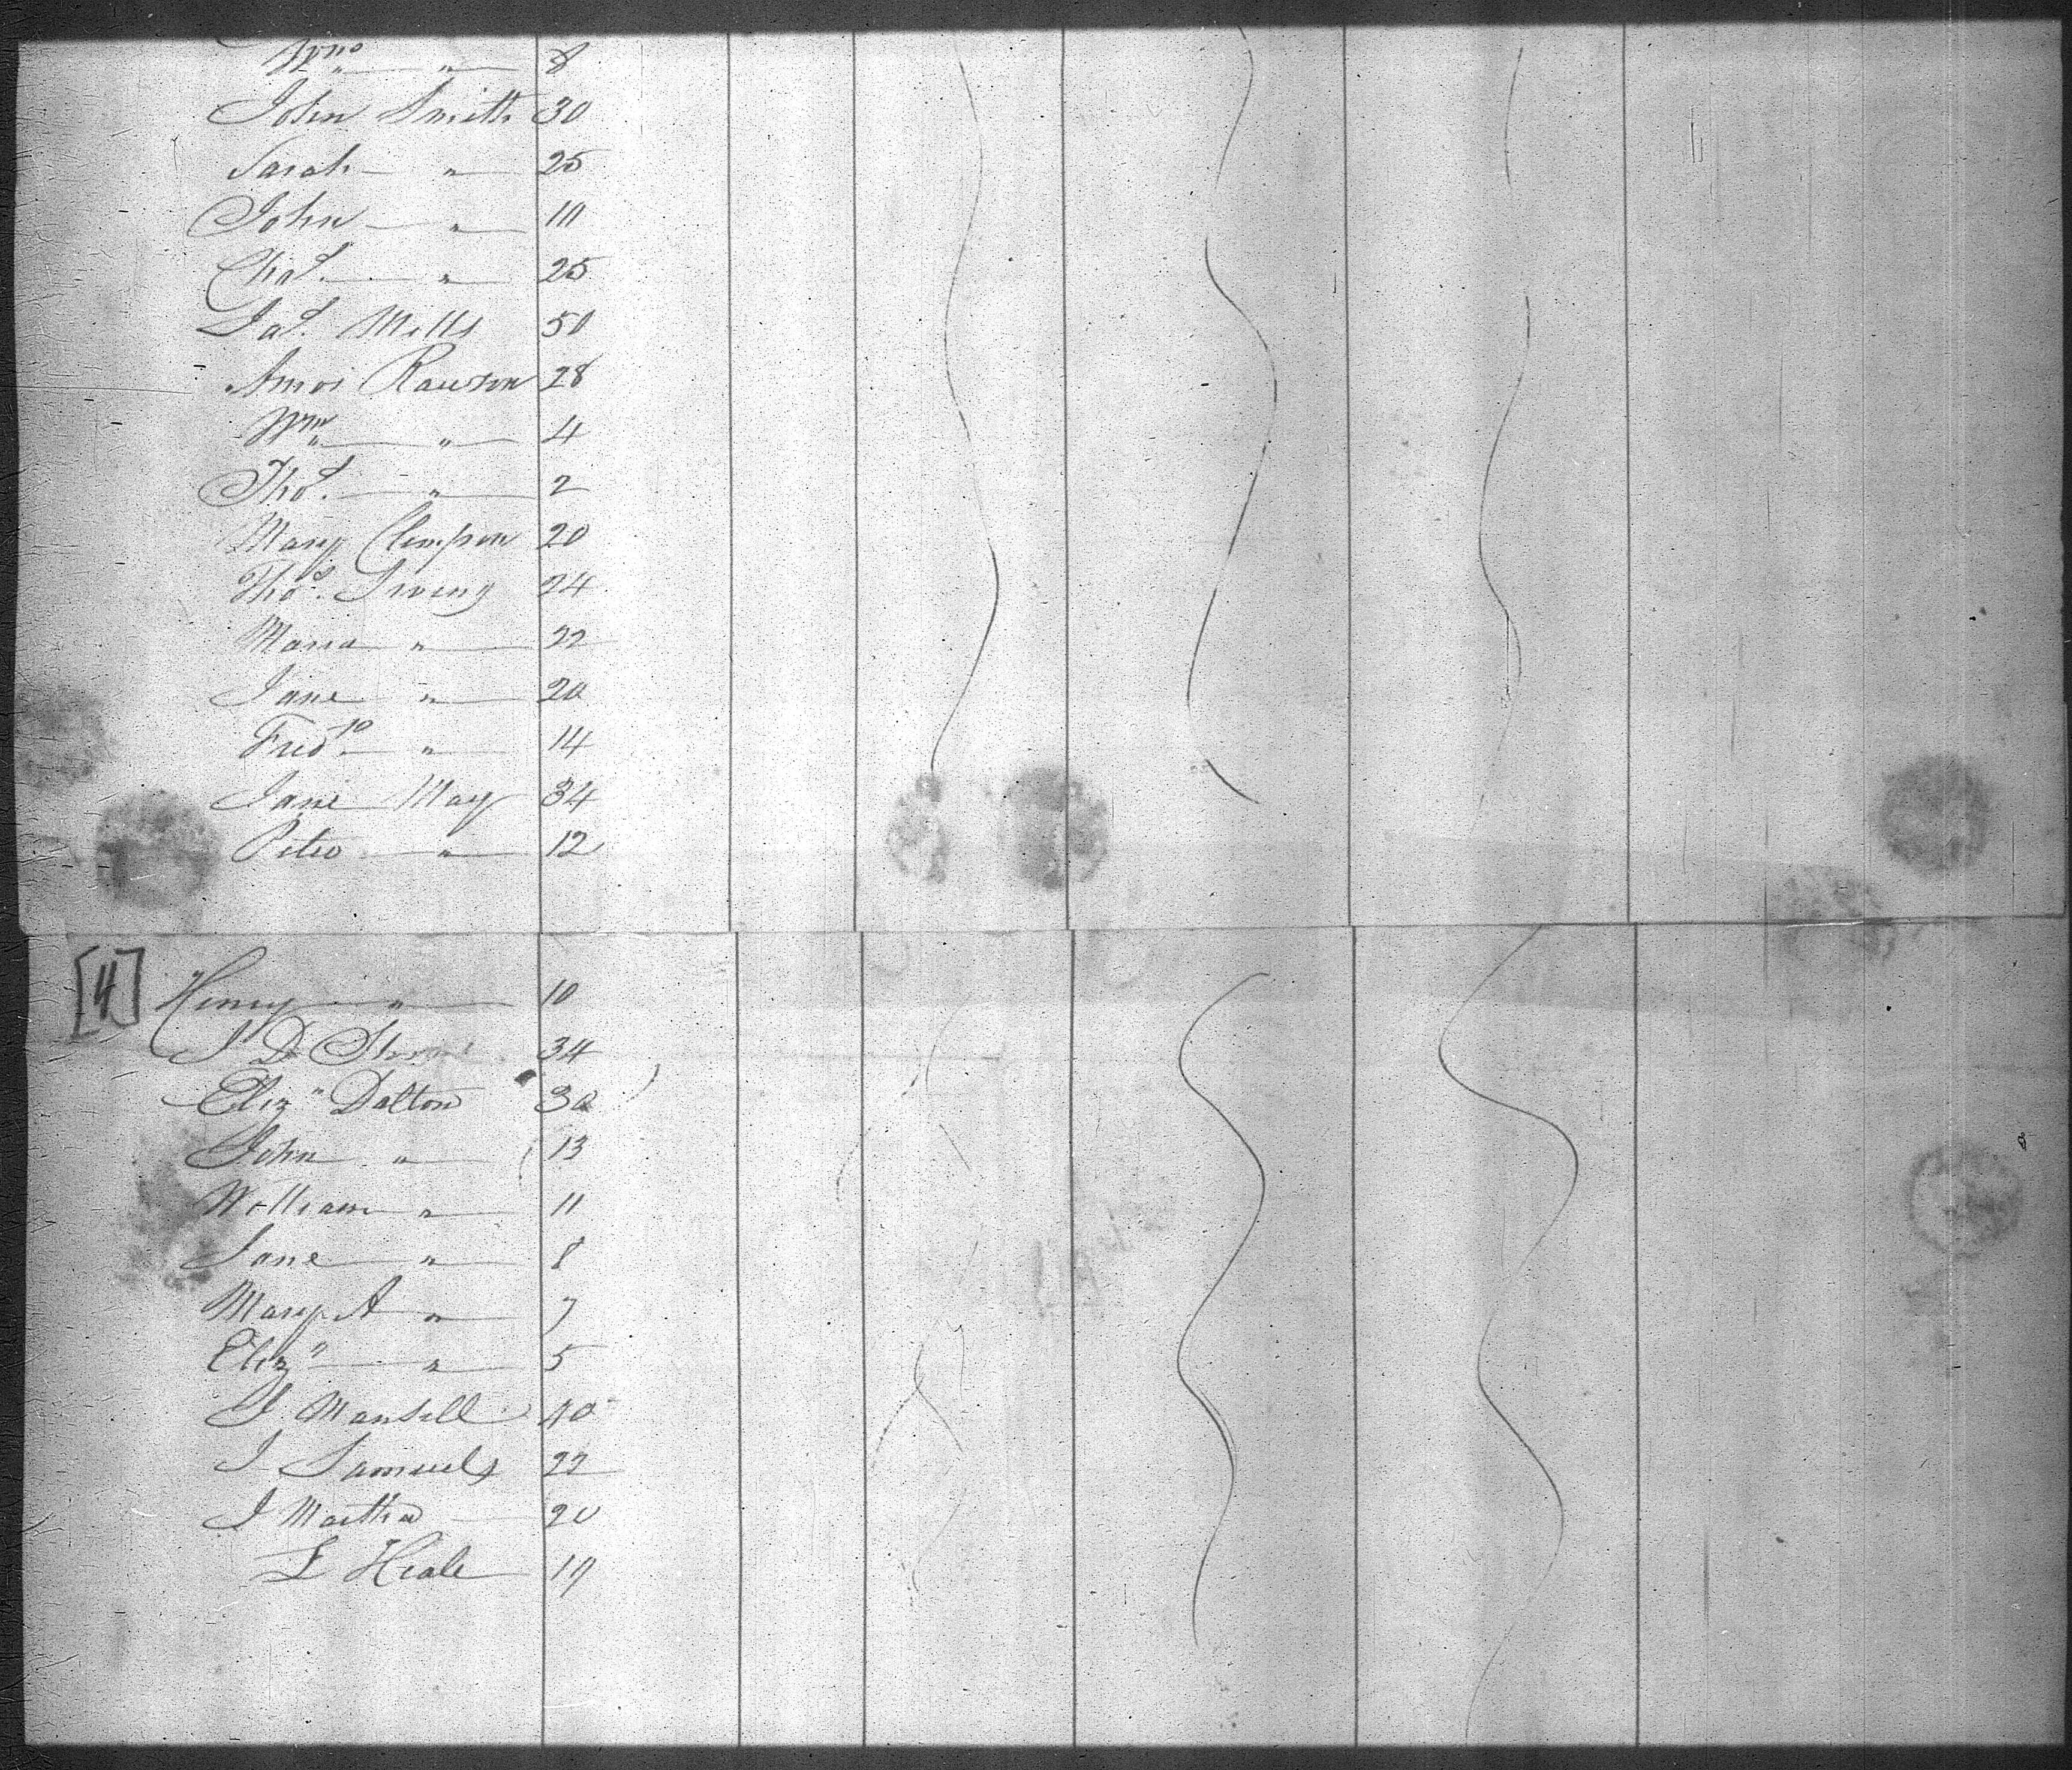 Wm " " 8
John Smith 30
Sarah " 25
John " 10
Chas. " 25
Jas. Mills 50
Amos Rawson 28
Wm " " 4
Thos. " 2
Mary Clempson 20
Thos. 24
Maria " 22
Jane " 20
Fredk. " 14
Jane May 34
Peter " 12
[4] Henry " 10
J D 34
Eliz" Dalton 30
John " 13
William " 11
Jane " 8
Mary A " 7
Eliz" " 5
J. Mansell 40
J Samuels 22
J Martha 20
L Heale 19